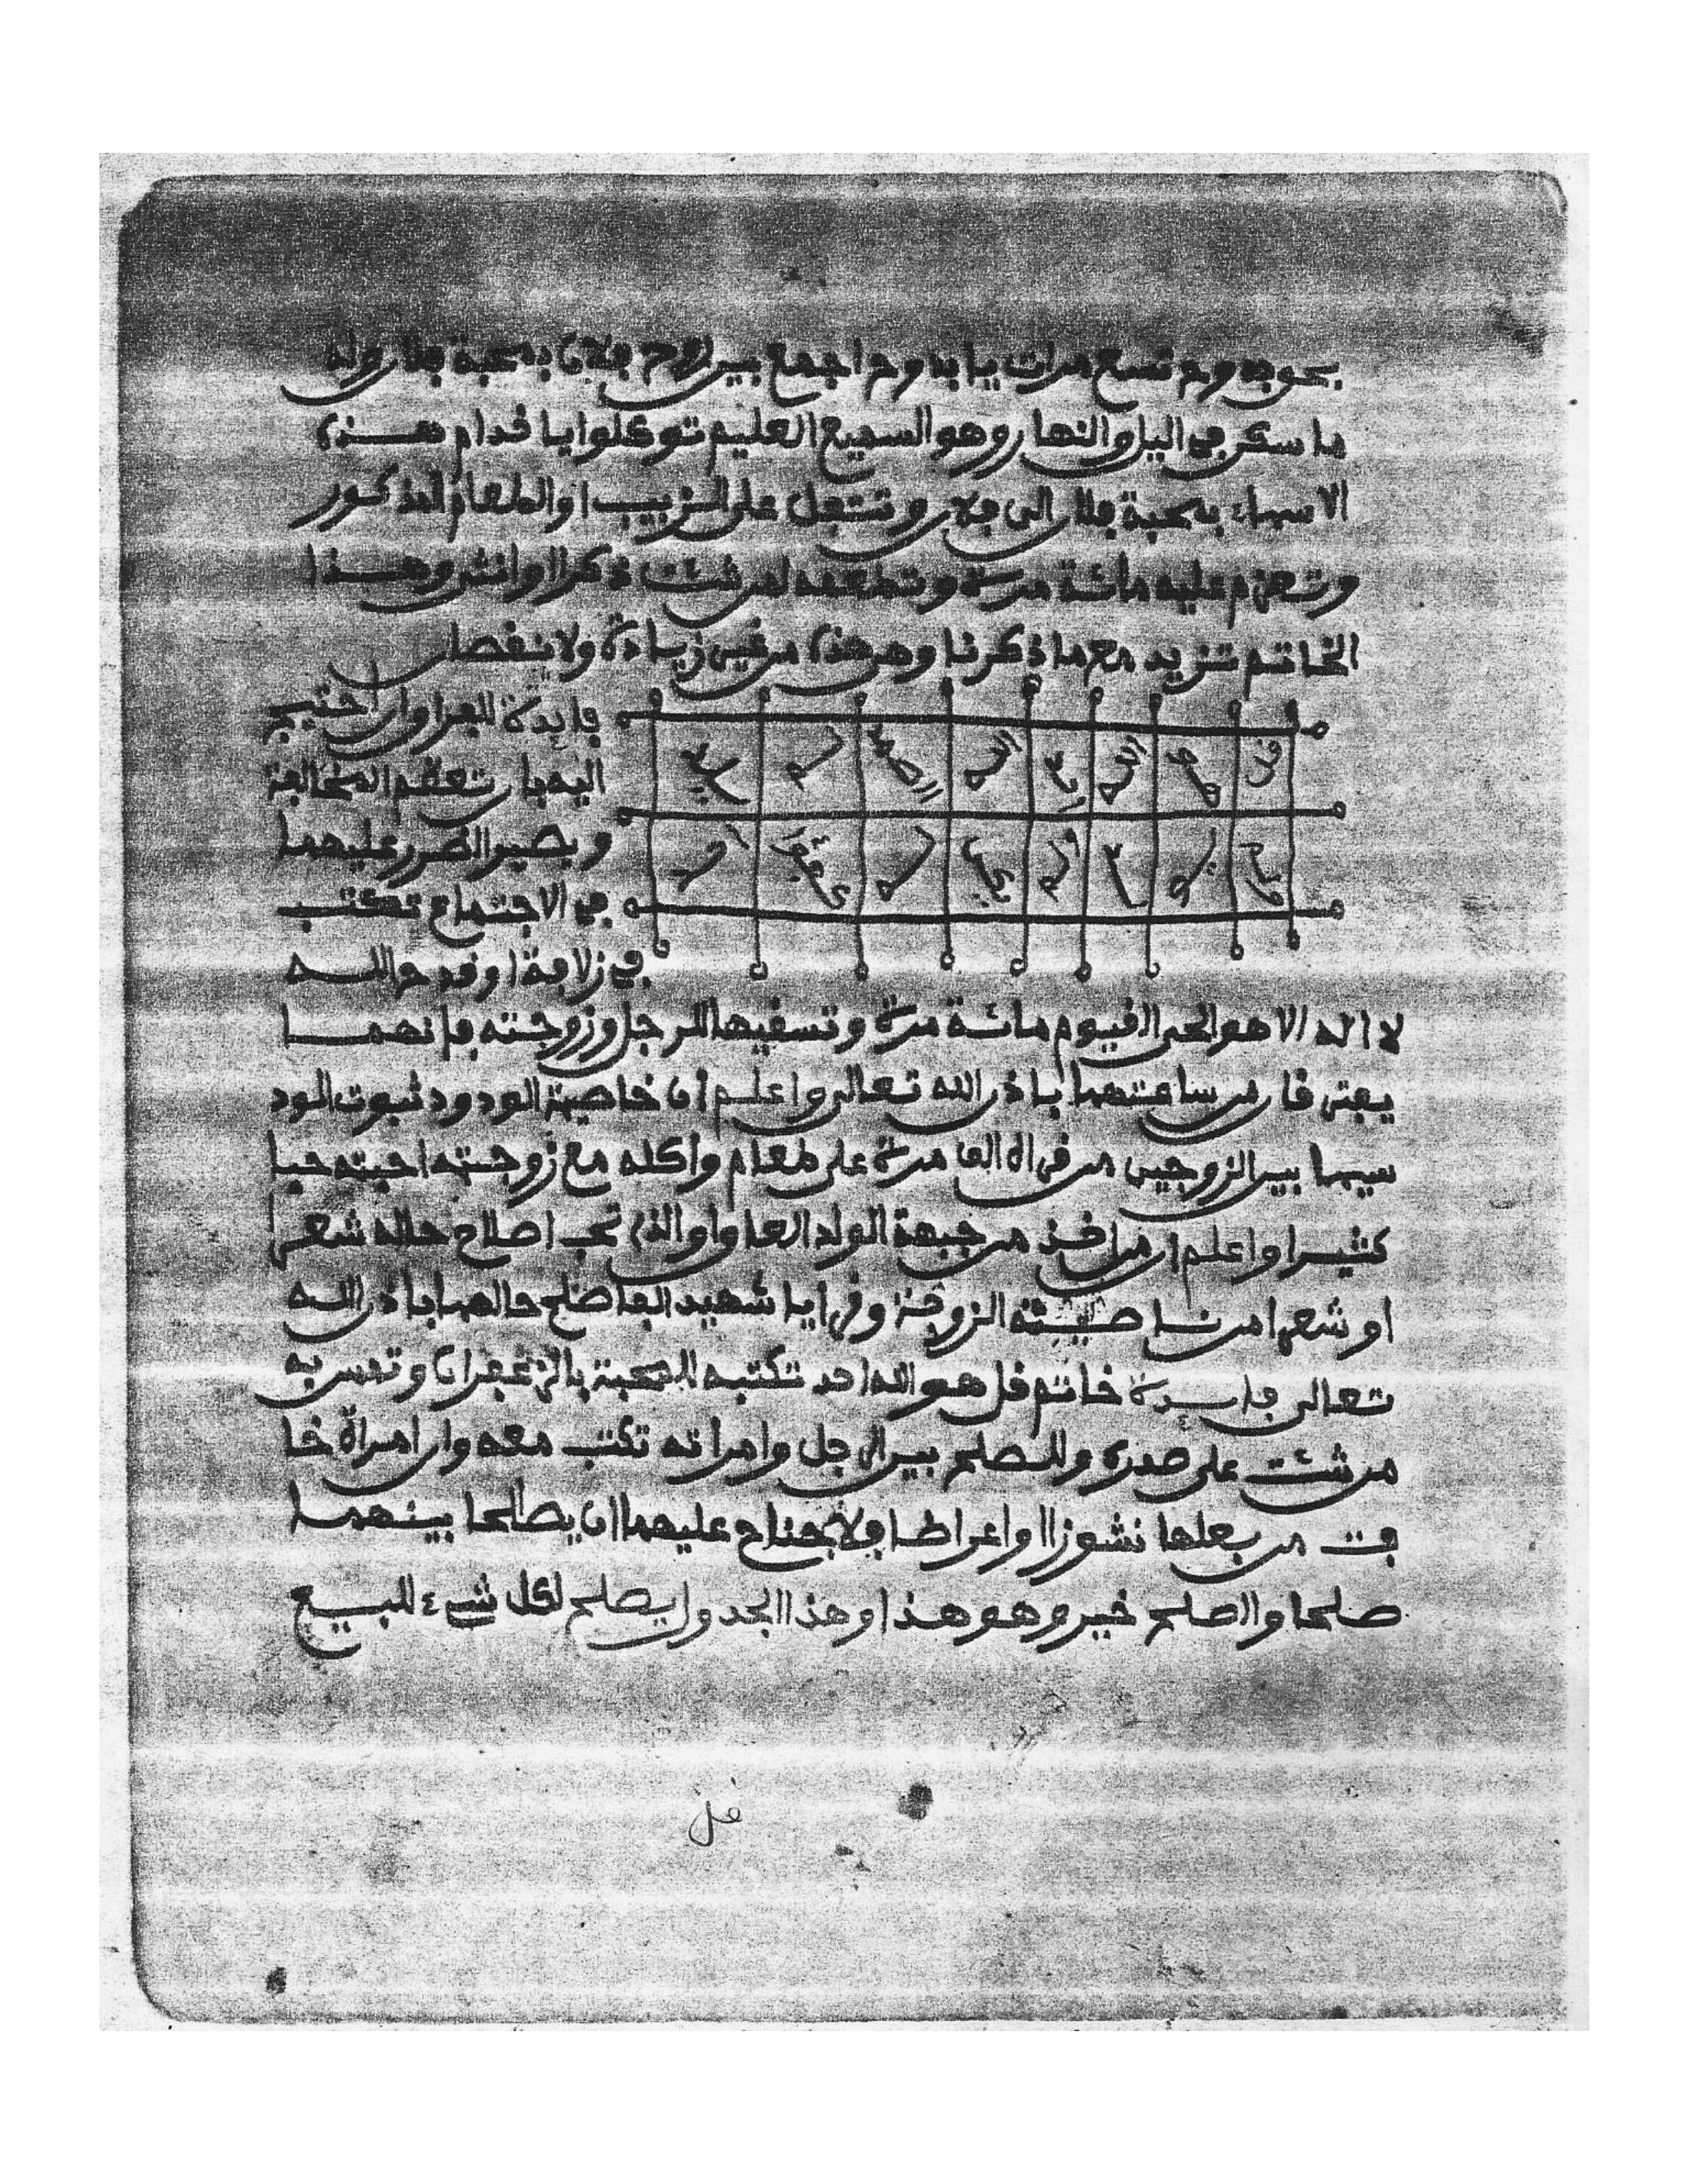 بحق بدوح تسع مرات يا بدوح اجمع بين روح فلان بمحبة فلان وله
ما سكن في اليل والنهار وهو السميع العليم توكلوا يا خدام هذه
الاسماء بمحبة فلان الى فلان وتتفل على الزبيب او الطعام المذكور
وتعزم عليه مائة مرة وتطعمه لمن شئت ذكرا او انثى وهذا
الخاتم تزيد مع ما ذكرنا وهو هذا من غير زيادة ولا نقصان
قل هو الله احد الله الصمد لم يلد
ولم يكن له كفوا احد
فايدة للفراق ان احتيج
اليه بان تعظم المخالفة
ويصير الضرر عليهما
في الاجتماع تكتب
في زلافة او قدح الله
لا اله الا هو الحي القيوم مائة مرة وتسقيها للرجل وزوجته فانهما
يفترقان من ساعتهما باذن الله تعالى واعلم ان خاصية الودود ثبوت الود
سيما بين الزوجين من قراه الفا مرة على طعام واكله مع زوجته احبته حبا
كثيرا واعلم ان من اخذ من جبهة الولد العاق او الذي تحب اصلاح حاله شعر
او شعرا من ناصية الزوجة وقرا يا شهيد الفا صلح حالهما باذن الله
تعالى فايدة خاتم قل هو الله احد تكتبه للمحبة بالزعفران وتمس به
من شئت على صدره وللصلح بين الرجل وامراته تكتب معه وان امراة خا
فت من بعلها نشوزا او اعراضا فلا جناح عليهما ان يصالحا بينهما
صلحا والصلح خير وهو هذا وهذا الجدول يصلح لكل شيء للبيع
قل